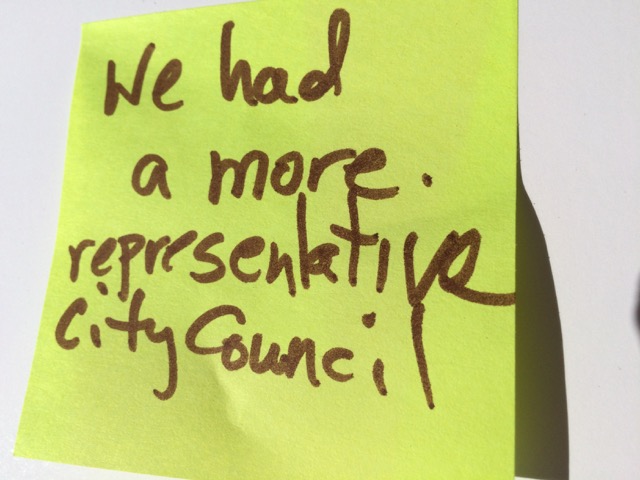 We had
a more.
representative
City Council